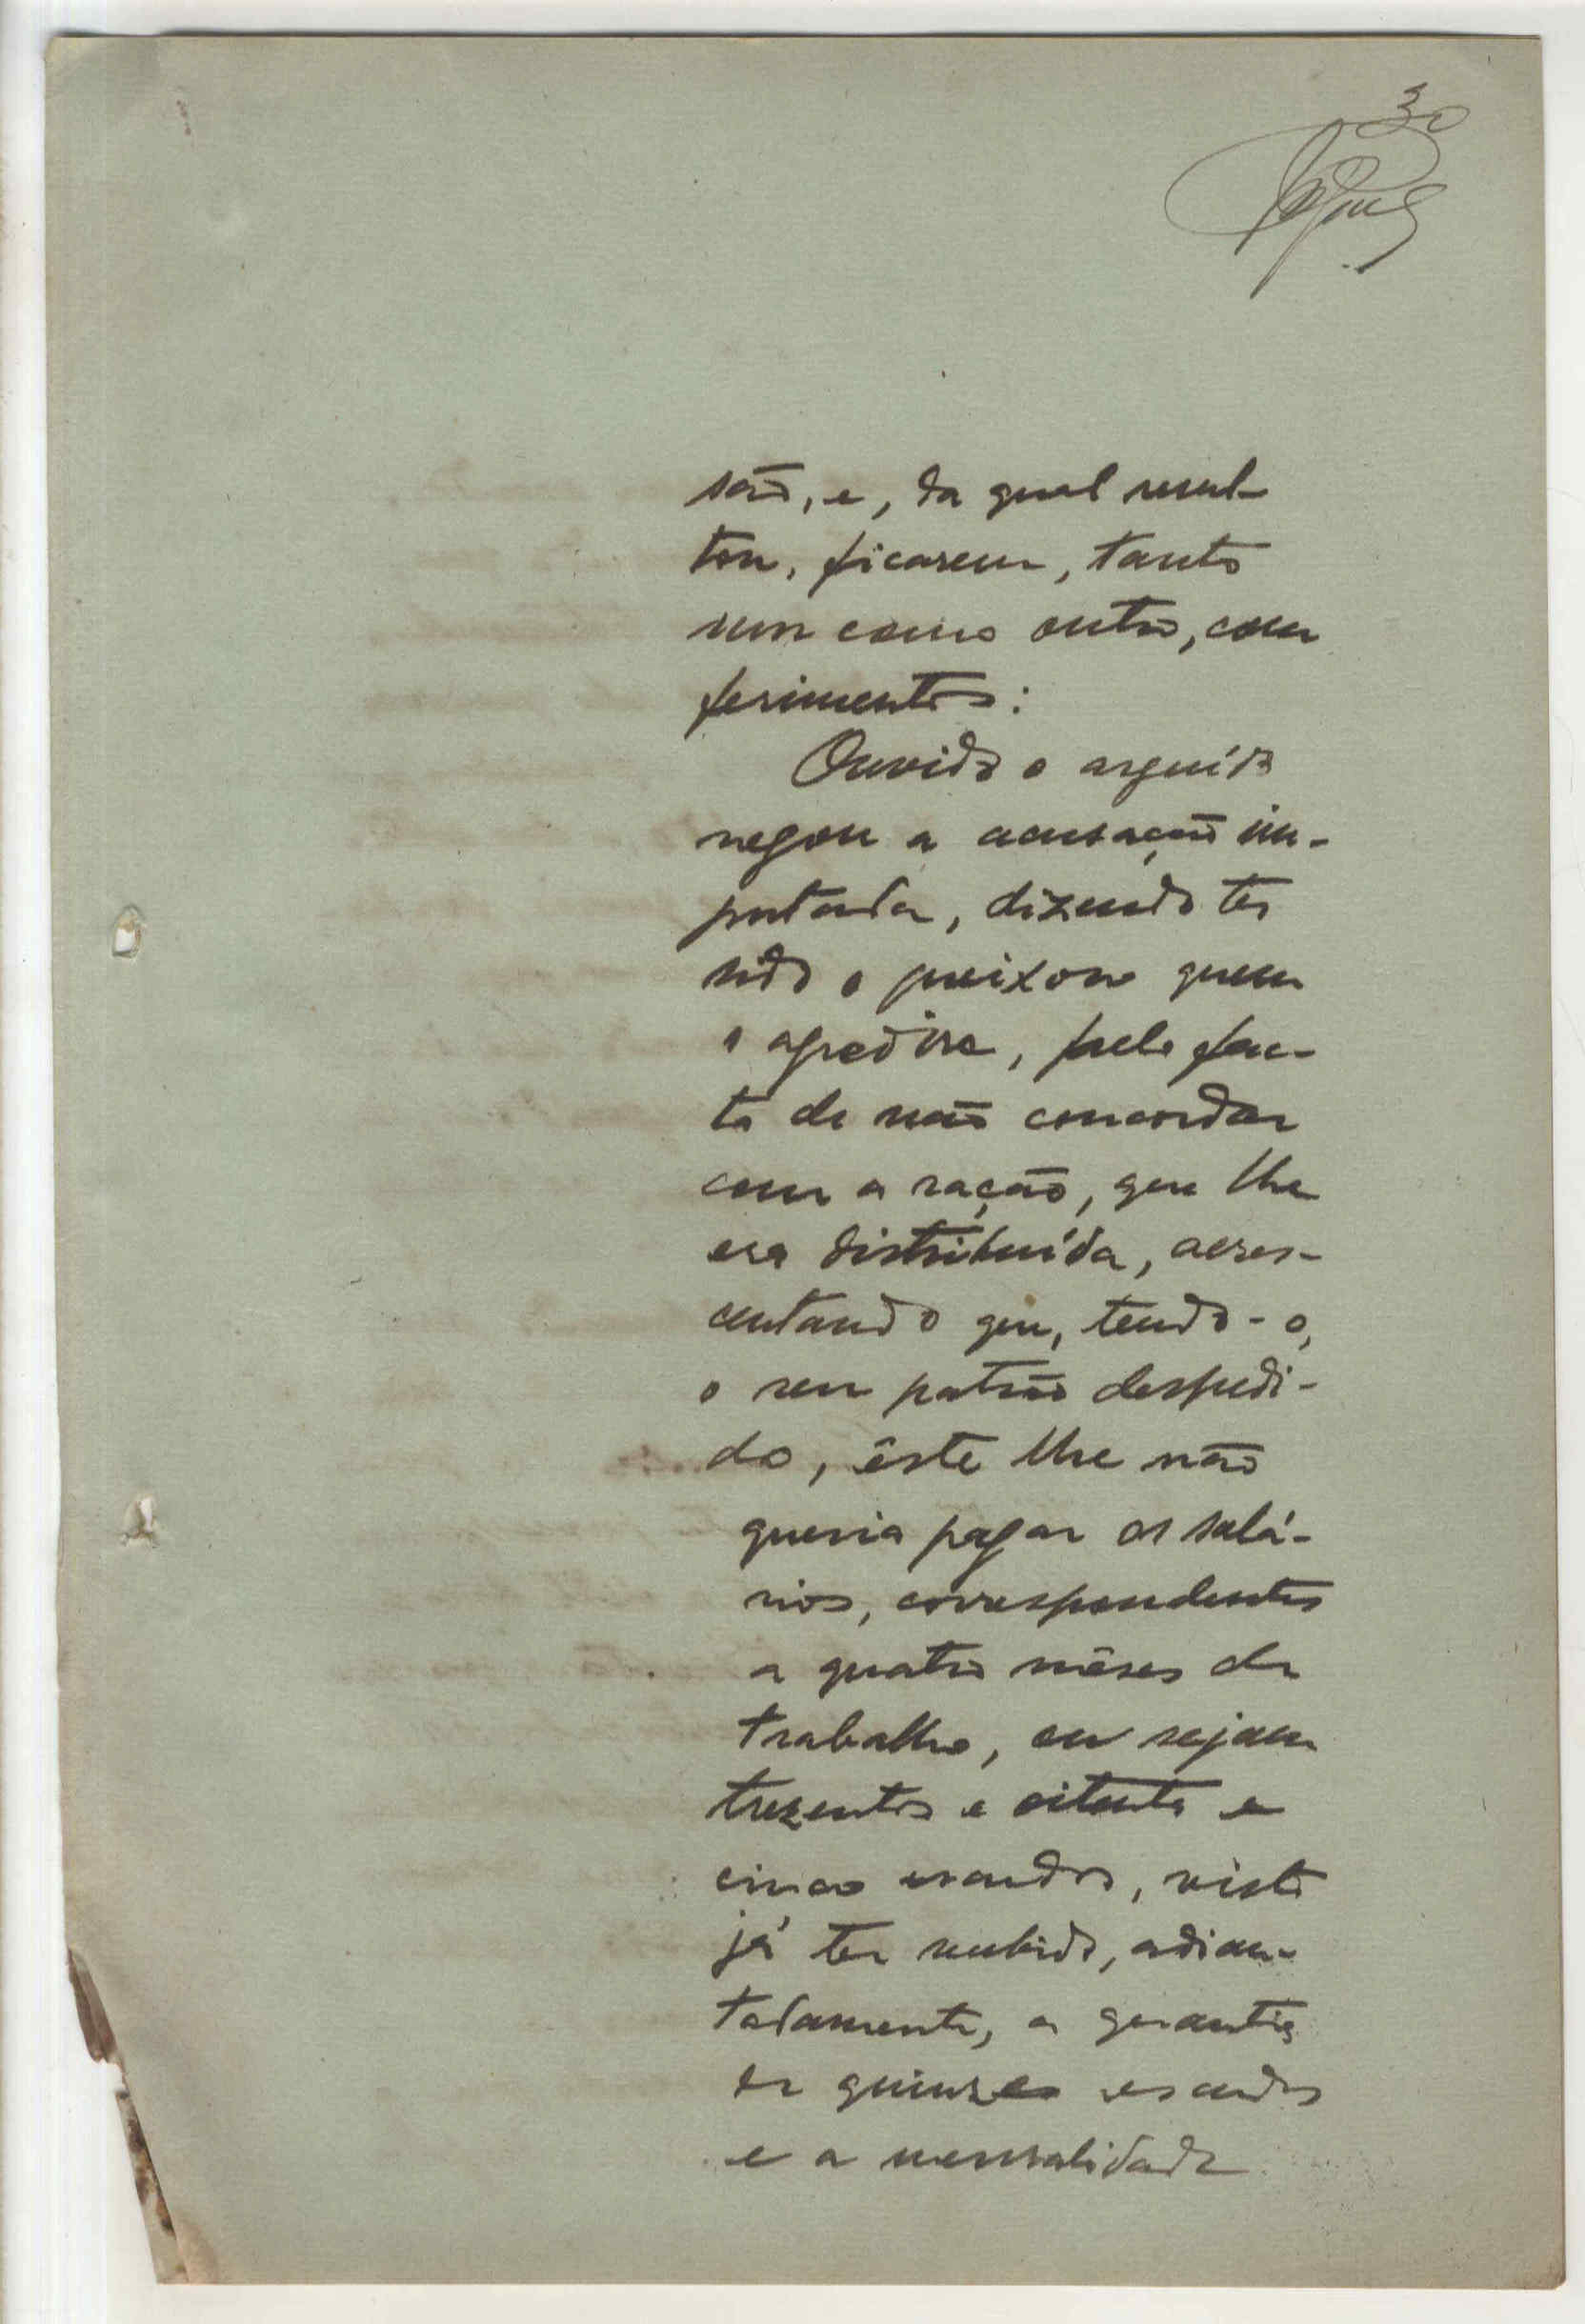 30
são, e, da qual resul-
tou, ficarem, tanto
um como outro, com
ferimentos:
Ouvido o arguido
negou a acusação im-
putada, dizendo ter
sido o queixoso quem
o agredira, pelo fac-
to de não concordar
com a ração, que lhe
era distribuída, acres-
centando que, tendo-o,
o seu patrão despedi-
do, êste lhe não
queria pagar os salá-
rios, correspondentes
a quatro mêses de
trabalho, ou sejam
trezentos e oitenta e
cinco escudos, visto
já ter recebido, adian-
tadamente, a garantia
de quinze escudos
e a mensalidade